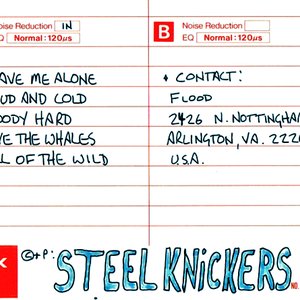 oise Reduction IN
Q Normal: 120µs
AVE ME ALONE
UD AND COLD
ODY HARD
E THE WHALES
L OF THE WILD
B Noise Reduction
EQ Normal: 120µs
+ CONTACT:
FLOOD
2426 N. NOTTINGHAM
ARLINGTON, VA. 222
U.S.A.
K
©+P: STEEL KNICKERS
NO.